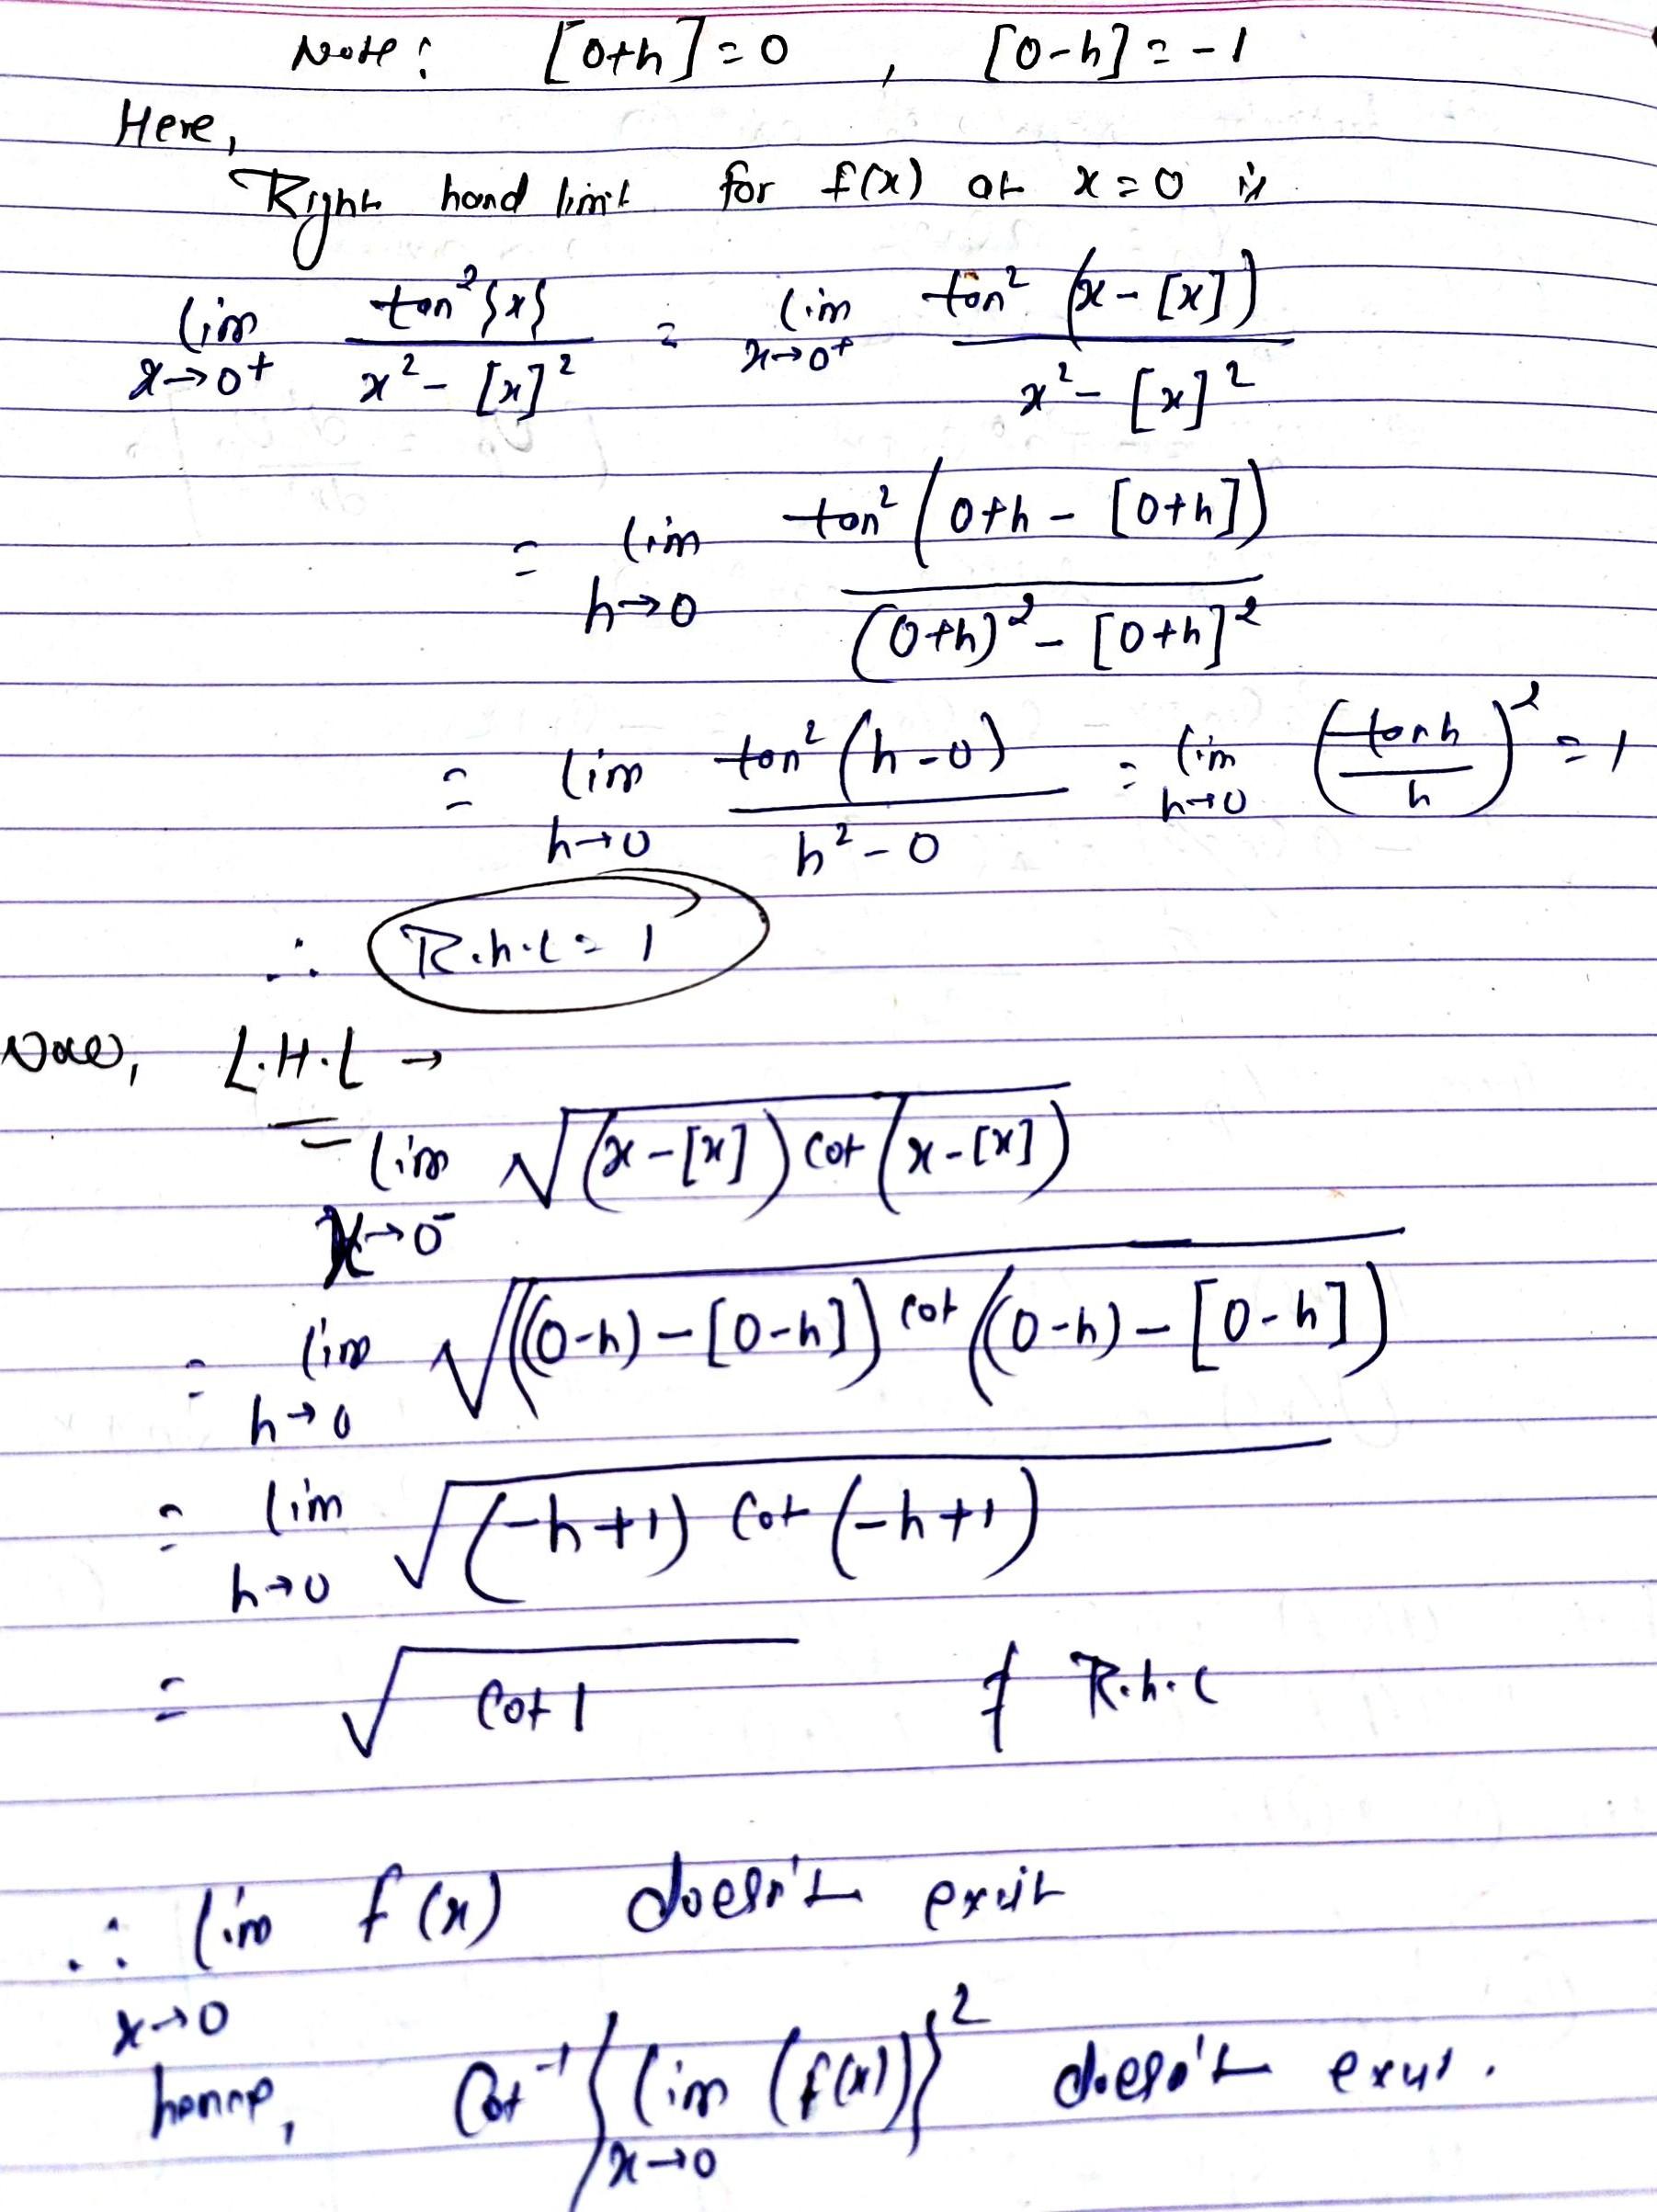 Note: [0+h] = 0 , [0-h] = -1
Here,
Right hand limit for f(x) at x = 0 is
lim x→0+ tan²{x} / x² - [x]² = lim x→0+ tan² (x - [x]) / x² - [x]²
= lim h→0 tan² (0+h - [0+h]) / (0+h)² - [0+h]²
= lim h→0 tan² (h-0) / h² - 0 = lim h→0 (tan h / h)² = 1
∴ R.h.l = 1
Now, L.H.L →
= lim x→0⁻ √(x - [x]) cot (x - [x])
= lim h→0 √((0-h) - [0-h]) cot ((0-h) - [0-h])
= lim h→0 √(-h+1) cot (-h+1)
= √cot 1 ≠ R.h.l
∴ lim x→0 f(x) doesn't exist
hence, Cot⁻¹ {lim x→0 (f(x))}² doesn't exist.